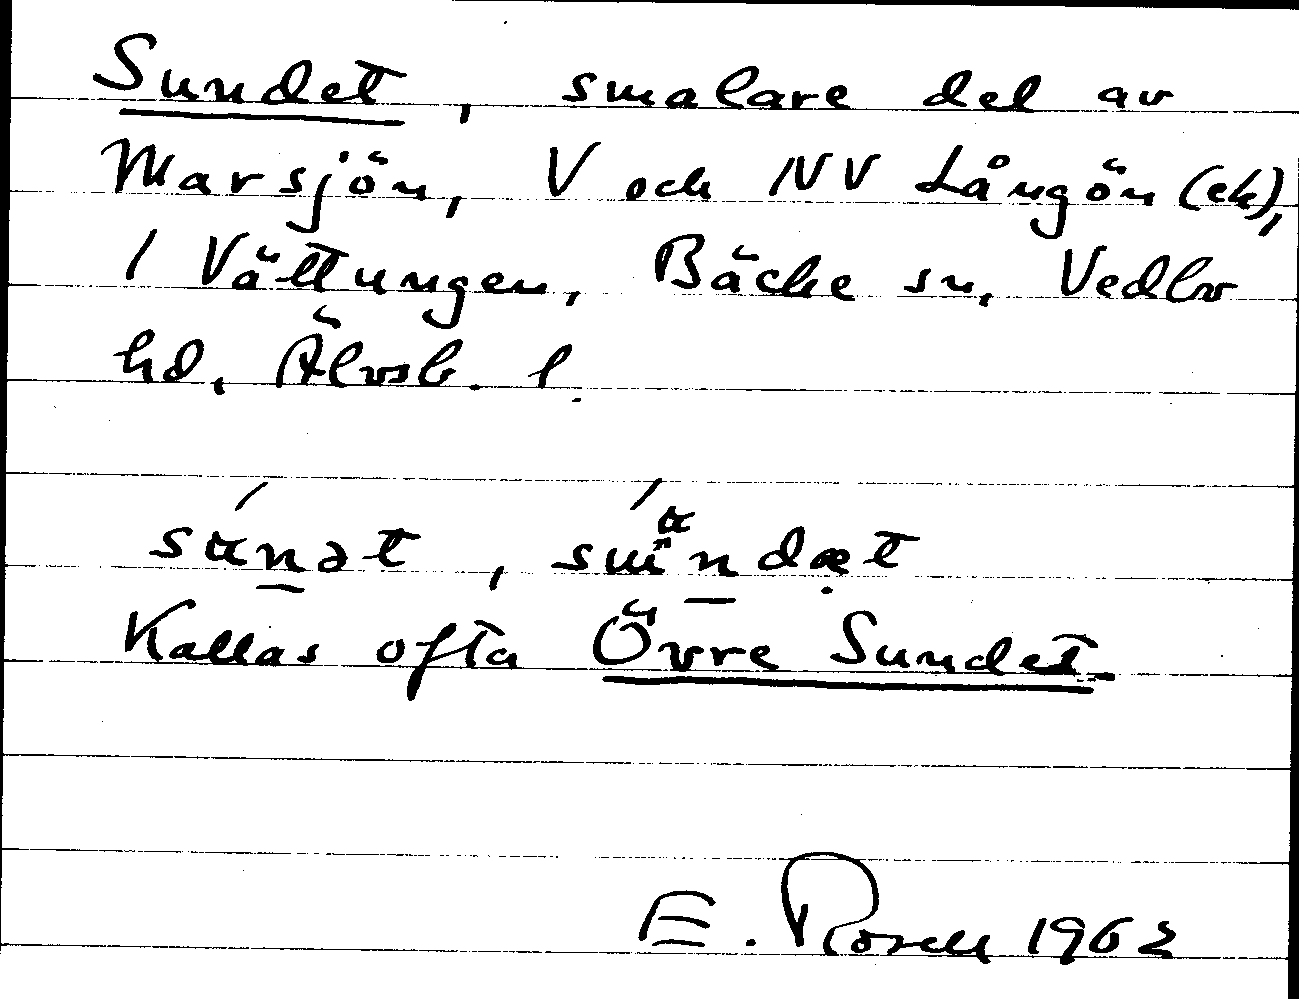 Sundet, smalare del av
Marsjön, V och NV Långön (ek),
/ Vättungen, Bäcke sn, Vedbo
hd, Älvsb. l.
sɑ́n̲ət, suńdæt
Kallas ofta Övre Sundet
E. Rosell 1962